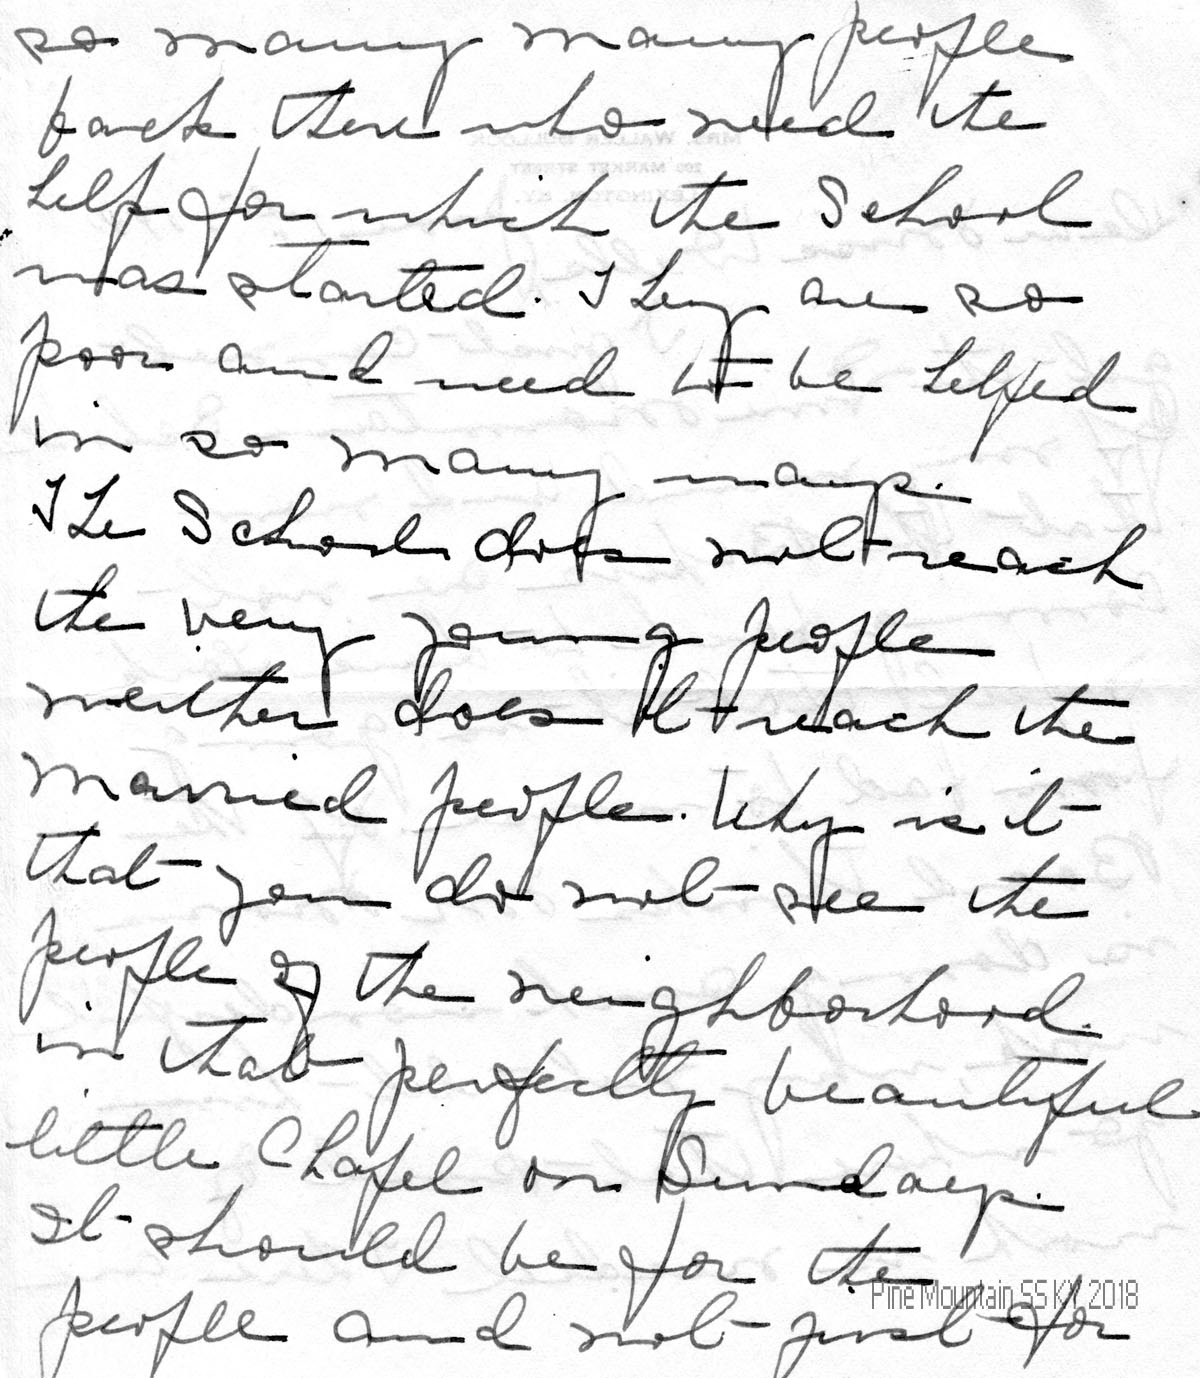 so many many people
back there who need the
help for which the School
was started. They are so
poor and need to be helped
in so many ways.
The School does not reach
the very young people
neither does it reach the
married people. Why is it
that you do not see the
people of the neighborhood
in that perfectly beautiful
little Chapel on Sundays.
It should be for the
people and not just for
Pine Mountain SS KY 2018
MRS. WALLER BULLOCK
200 MARKET STREET
LEXINGTON, KY.